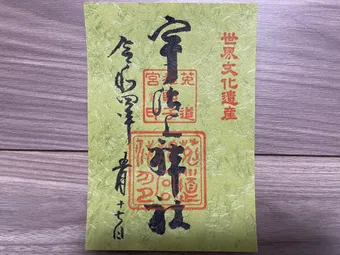 世界文化遺産
宇治上神社
令和四年 五月十七日